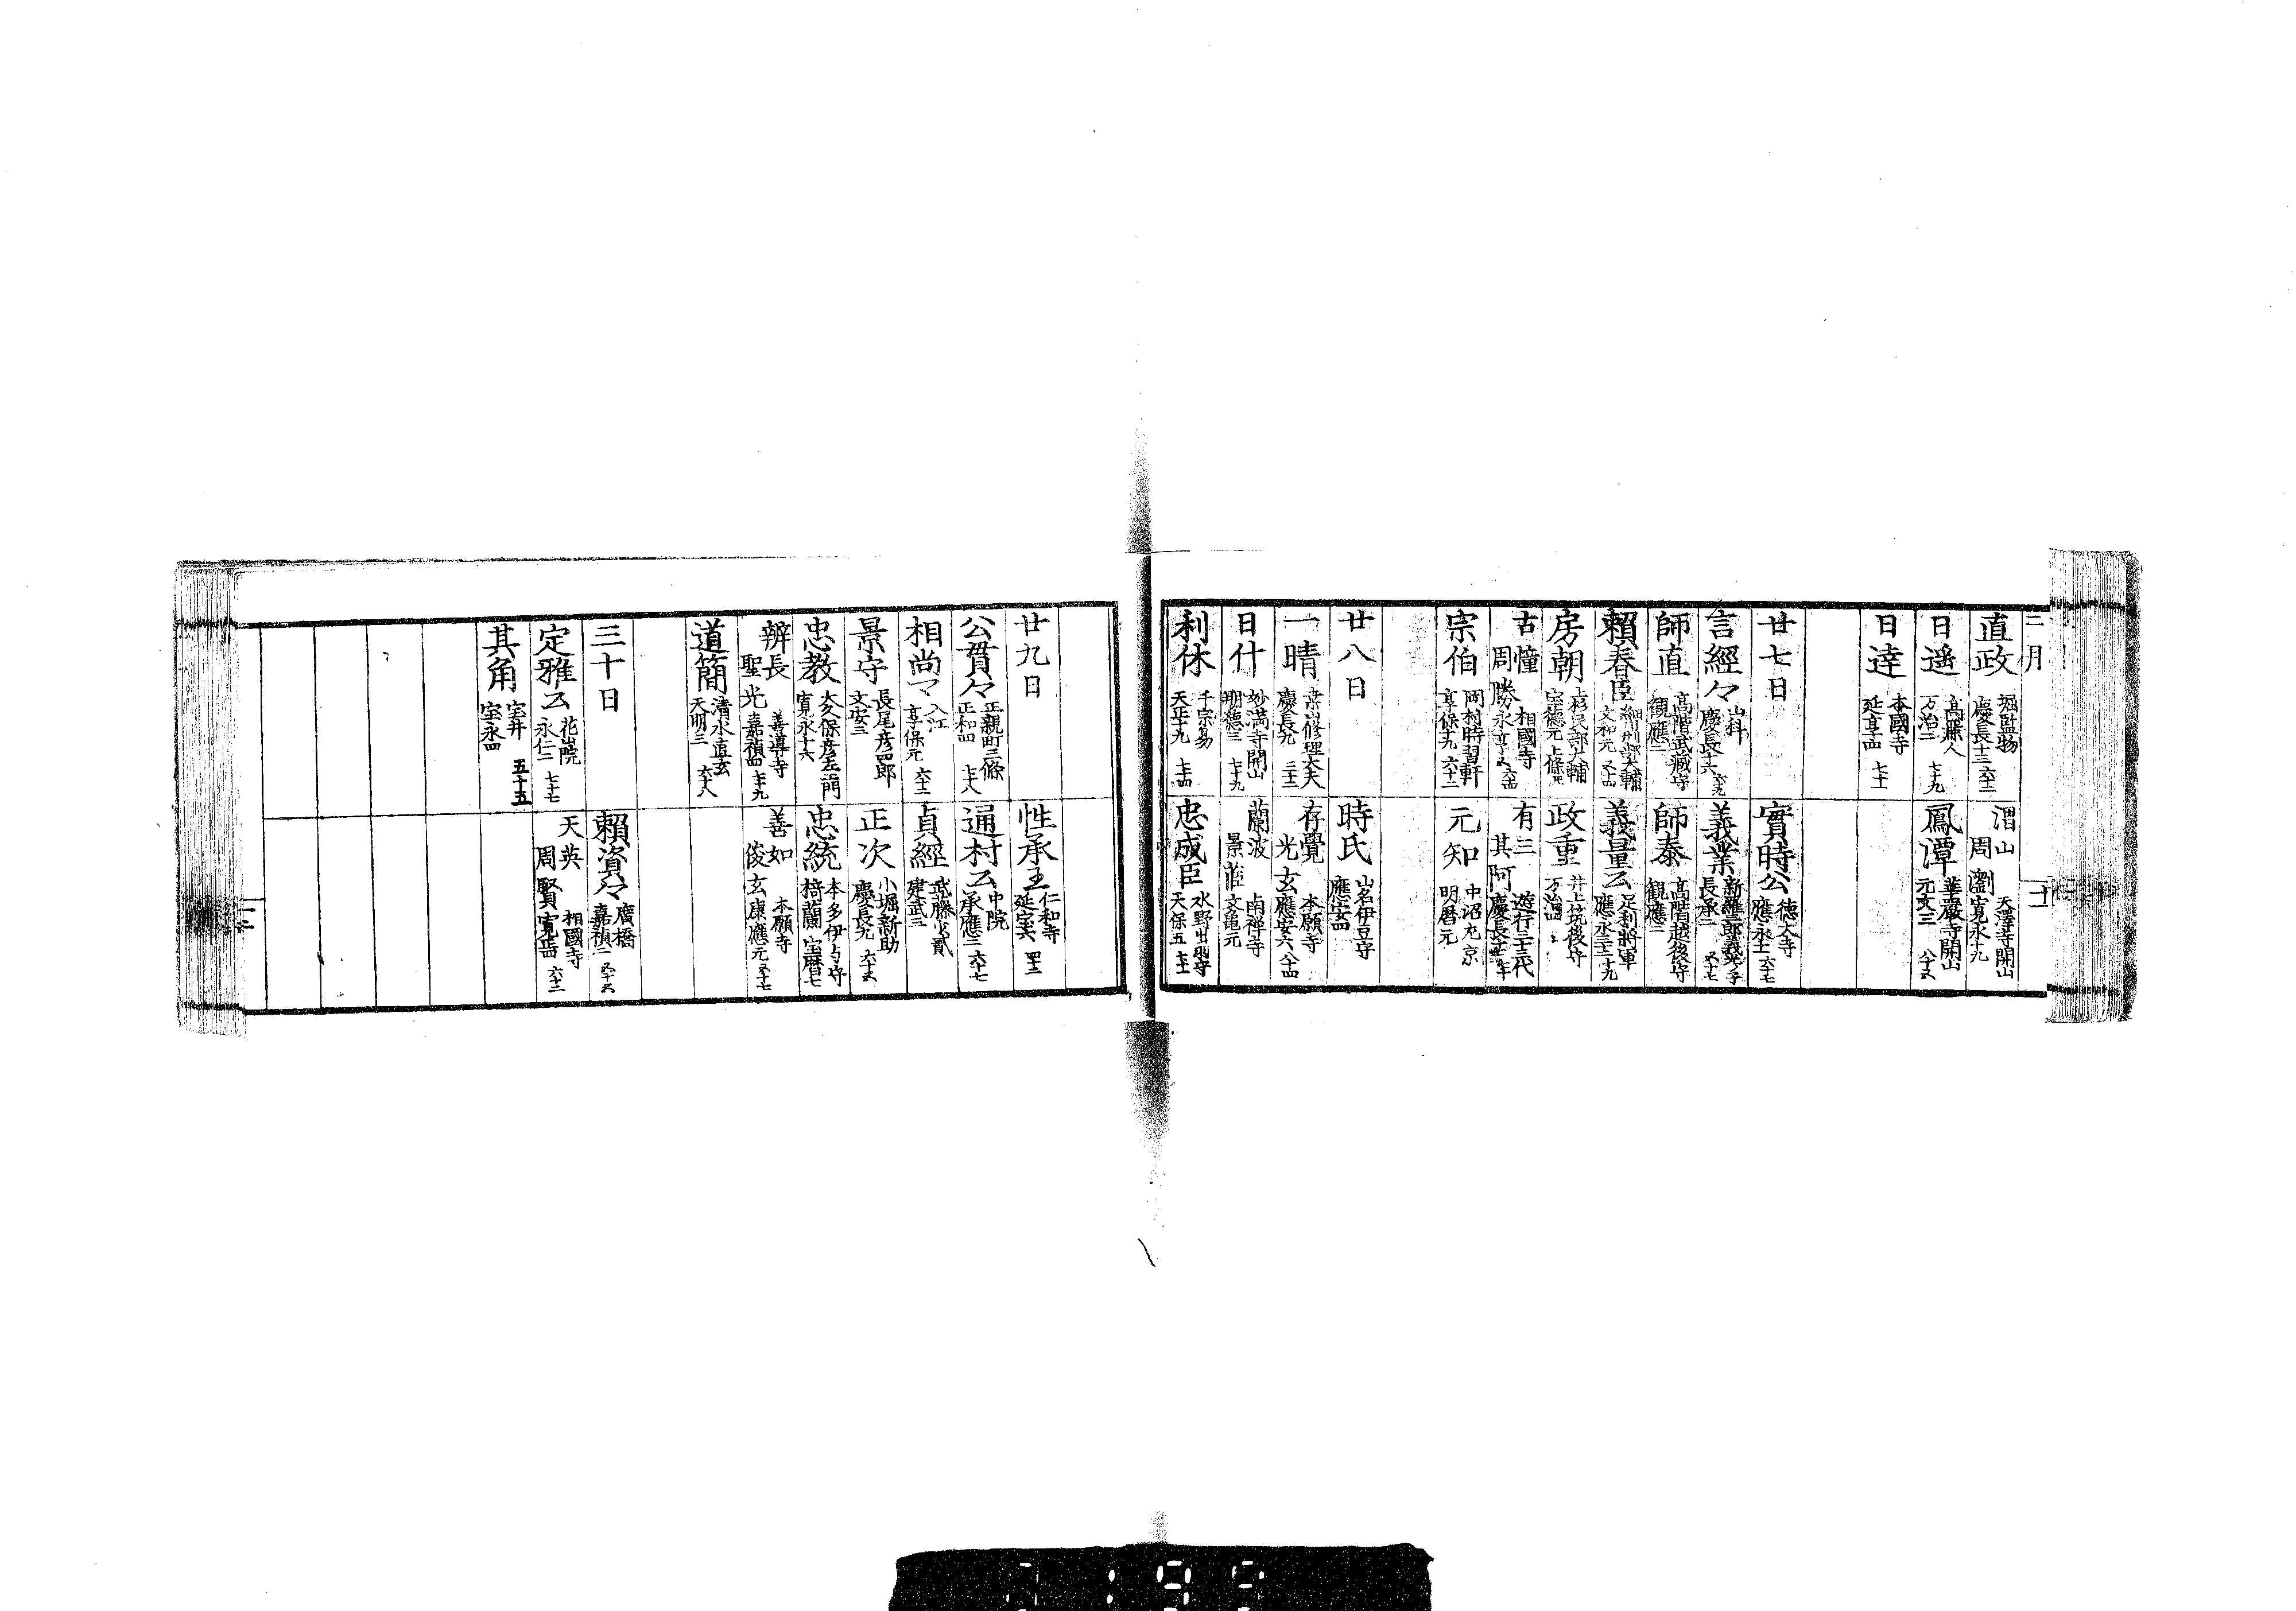 二月
直政 堀監物 慶長十三 六十二
渭山 周瀏 天澤寺開山 寛永十九
日遙 高麗人 万治二 七十九
鳳潭 華嚴寺開山 元文三 八十五
日達 本國寺 延享四 七十一
廿七日
實時公 德大寺 應永十一 六十七
言經々 山科 慶長十六 六十九
義業 長承二 五十七
師直 高階武藏守 觀應二
師泰 高階越後守 觀應二
賴春臣 細川刑部大輔 文和元 五十四
義量公 足利將軍 應永三十二 十九
房朝 上杉民部大輔 宝德元
政重 井上筑後守 万治四
古幢 周勝 相國寺 永享五 六十四
有三 其阿 遊行三十三代 慶長十七年
宗伯 岡村時習軒 享保十九 六十二
元知 中沼左京 明暦元
廿八日
時氏 山名伊豆守 應安四
一晴 桒山修理大夫 慶長九 三十三
存覺 光玄 本願寺 應安六 八十四
日什 妙滿寺開山 明德三 七十九
蘭波 景茝 南禅寺 文亀元
利休 千宗易 天正十九 七十四
忠成臣 水野出羽守 天保五 七十三
廿九日
性承王 仁和寺 延宝六 四十二
公貫々 正親町三條 正和四 七十八
通村公 中院 承應二 六十七
相尚マ 入江 享保元 六十二
貞經 武藤少貳 建武三
景守 長尾彦四郎 文安三
正次 小堀新助 慶長九 六十五
忠教 大久保彦左ヱ門 寛永十六
忠統 本多伊与守 猗蘭 宝暦七
辨長 聖光 善導寺 嘉禎四 七十九
善如 俊玄 本願寺 康應元 五十七
道簡 清水直玄 天明三 六十八
三十日
賴資々 廣橋 嘉禎二 五十五
定雅公 花山院 永仁二 七十七
天英 周賢 相國寺 寛正四 六十二
其角 宝井 宝永四 五十五